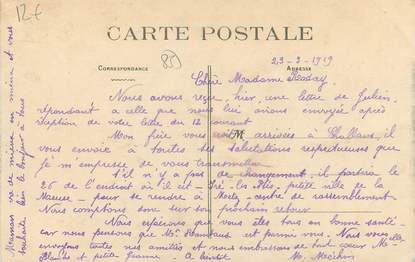 12 f
CARTE POSTALE
CORRESPONDANCE
ADRESSE
85
23-2-1919
Chère Madame
Nous avons reçu, hier, une lettre de Julien,
répondant a celle que nous lui avions envoyée après
réception de votre lettre du 12 courant
Mon frère vous arrivées à Challans, il
vous envoie à toutes ses salutations respectueuses que
je m'empresse de vous transmettre
S'il n'y a pas de changement, il partira le
26 de l'endroit où il est petite ville de la
Meuse pour se rendre à centre de rassemblement
Nous comptons sur son prochain retour
Nous espérons que vous êtes tous en bonne santé
car nous pensons que Mr est parmi vous. Nous vous
envoyons toutes nos amitiés et nous embrassons de tout coeur Melle
Blanche et petite Jeanne. A bientôt M.
Maman va de mieux en mieux et vous
souhaite bien le bonjour à tous